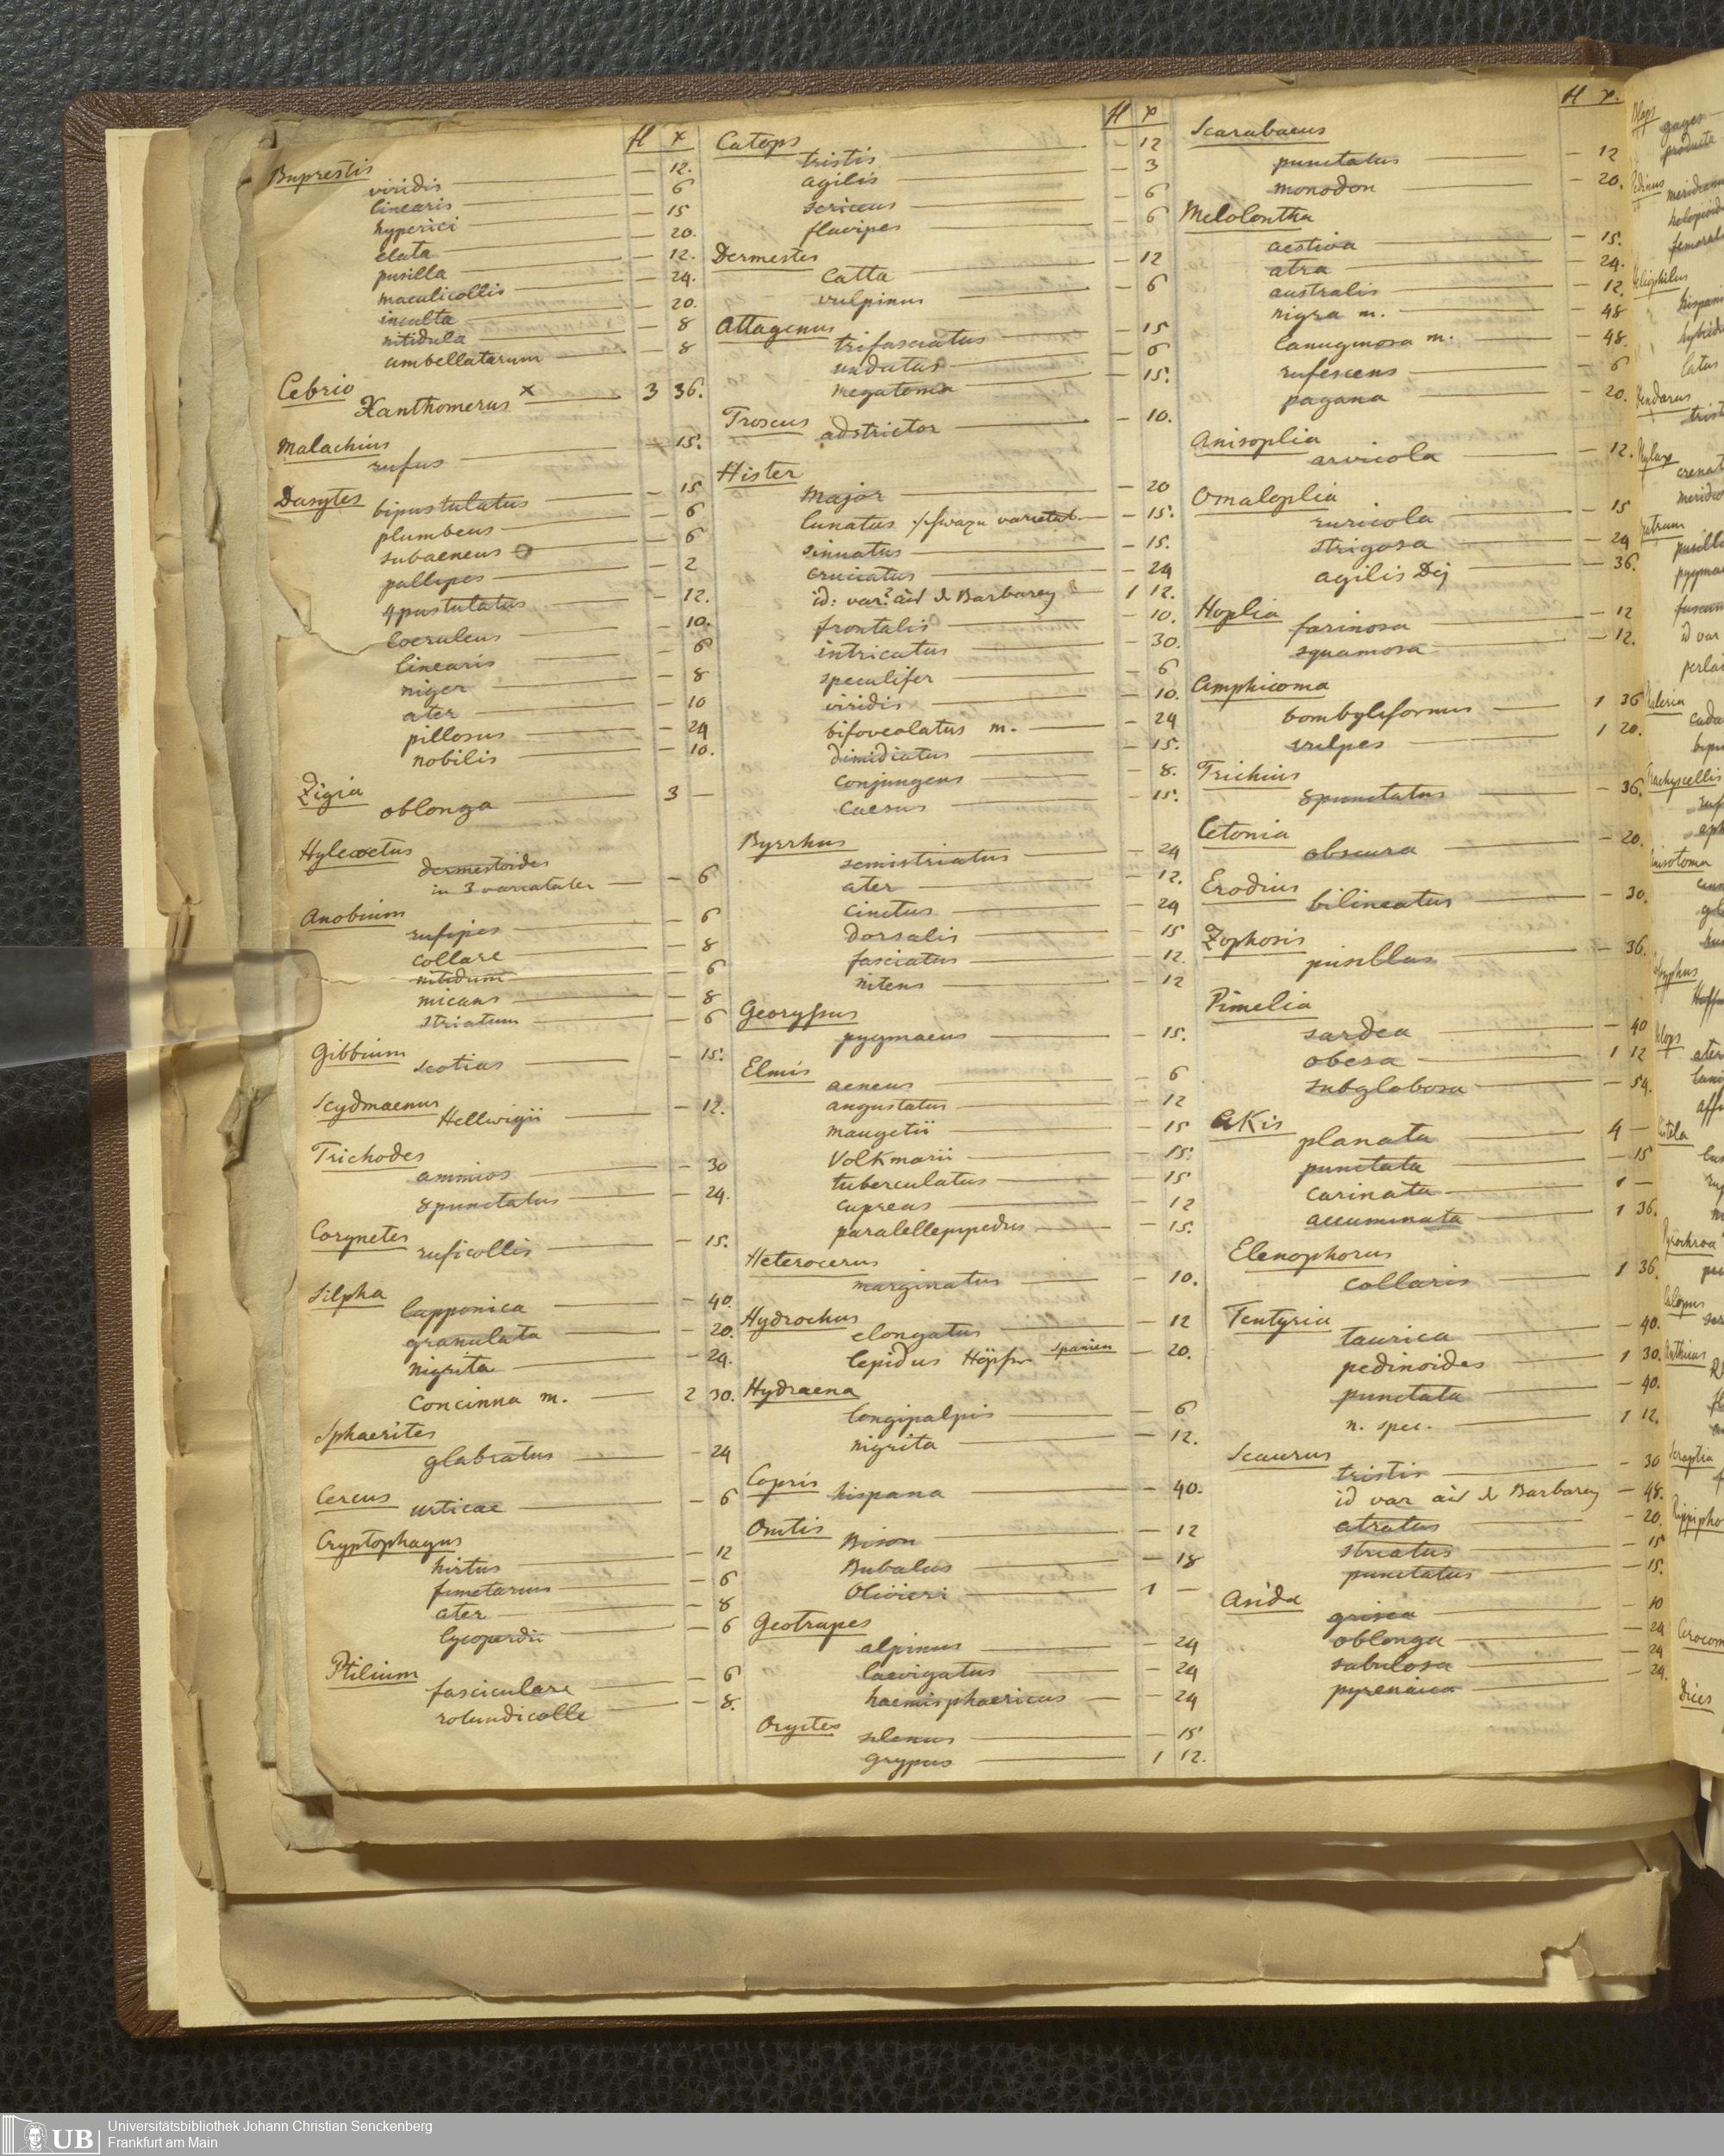 fl x
Buprestis
viridis — — 12.
linearis — — 6
hyperici — — 15
elata — — 20.
pusilla — — 12.
maculicollis — — 24.
inculta — — 20.
nitidula — — 8
umbellatarum — — 8
Cebrio
Xanthomerus x — 3 36.
Malachius
rufus — — 15.
Dasytes
bipustulatus — — 15
plumbeus — — 6
subaeneus — — 6
pallipes — — 2
4pustulatus — — 12.
coeruleus — — 10.
linearis — — 6
niger — — 8
ater — — 10
pillosus — — 24
nobilis — — 10.
Zigia
oblonga — 3 —
Hylecoetus
dermestoides
in 3 varietaten — — 6
Anobium
rufipes — — 6
collare — — 8
nitidum — — 6
micans — — 8
striatum — — 6
Gibbium
scotias — — 15.
Scydmaenus
Hellwigii — — 12.
Trichodes
ammios — — 30
8punctatus — — 24.
Corynetes
ruficollis — — 15.
Silpha
lapponica — — 40.
granulata — — 20.
nigrita — — 24.
Concinna m. — 2 30.
Sphaerites
glabratus — — 24
Cercus
urticae — — 6
Cryptophagus
hirtus — — 12
fimetarius — — 6
ater — — 8
lycoperdii — — 6
Ptilium
fasciculare — — 6
rotundicolle — — 8.
fl x
Catops
tristis — — 12
agilis — — 3
sericeus — — 6
flavipes — — 6
Dermestes
Catta — — 12
vulpinus — — 6
Attagenus
trifasciatus — — 15
undatus — — 6
megatoma — — 15.
Troscus
adstrictor — — 10.
Hister
major — — 20
lunatus varietat. — — 15.
sinuatus — — 15.
cruciatus — — 24
id: var? aus d Barbarey — 1 12.
frontalis — — 10.
intricatus — — 30.
speculifer — — 6
viridis — — 10.
bifoveolatus m. — — 24
dimidiatus — — 15.
conjungens — — 8.
caesus — — 15.
Byrrhus
semistriatus — — 24
ater — — 12.
cinctus — — 24
dorsalis — — 15
fasciatus — — 12.
nitens — — 12
Georyssus
pygmaeus — — 15.
Elmis
aeneus — — 6
angustatus — — 12
maugetii — — 15
Volkmarii — — 15.
tuberculatus — — 15
cupreus — — 12
paralellepipedus — — 15.
Heterocerus
marginatus — — 10.
Hydrochus
elongatus — — 12
lepidus Höpfn Spanien — 20.
Hydraena
longipalpis — — 6
nigrita — — 12.
Copris
hispana — — 40.
Onitis
Bison — — 12
Bubalus — — 18
Olivieri — 1 —
Geotrupes
alpinus — — 24
laevigatus — — 24
haemisphaericus — — 24
Oryctes
silenus — — 15
grypus — 1 12.
fl x.
Scarabaeus
punctatus — — 12
monodon — — 20.
Melolontha
aestiva — — 15.
atra — — 24.
australis — — 12.
nigra m. — — 48
lanuginosa m. — — 48.
rufescens — — 6
pagana — — 20.
Anisoplia
arvicola — — 12.
Omaloplia
ruricola — — 15
strigosa — — 24
agilis Dej — — 36.
Hoplia
farinosa — — 12
squamosa — — 12.
Amphicoma
bombyliformis — 1 36
vulpes — 1 20.
Trichius
8punctatus — — 36.
Cetonia
obscura — — 20.
Erodius
bilineatus — — 30.
Zophosis
pusillus — — 36.
Pimelia
sardea — — 40
obesa — 1 12
subglobosa — — 54.
Akis
planata — 4 —
punctata — — 15
carinata — 1 —
accuminata — 1 36.
Elenophorus
collaris — 1 36.
Tentyria
taurica — — 40.
pedinoides — 1 30.
punctata — — 40.
n. spec. — 1 12.
Scaurus
tristis — — 30
id var aus d Barbarey — 48.
atratus — — 20.
striatus — — 15
punctatus — — 15.
Asida
grisea — — 10
oblonga — — 24
sabulosa — — 24
pyrenaica — — 24.
gages
producta
hispani
hybrid
latus
trist
crenat
meridio
pusill
pygmae
fuscum
id var
perla
UB Universitätsbibliothek Johann Christian Senckenberg
Frankfurt am Main